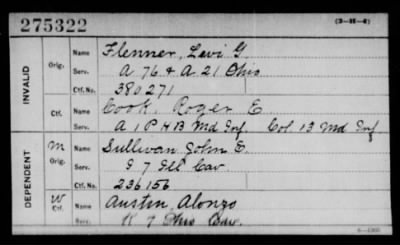 275322 (3-H-4)
INVALID
Orig. Name Flenner, Levi G.
Serv. A 76 & A 21 Ohio
Ctf. No. 380271
Ctf. Name Cook, Roger E.
Serv. A 1 P H B Md Inf. Col. 13 Md Inf.
DEPENDENT
m Orig. Name Sullivan John E.
Serv. 7 Ill Cav.
Ctf. No. 236156
W Ctf. Name Austin, Alonzo
Serv. K 7 Ohio Cav.